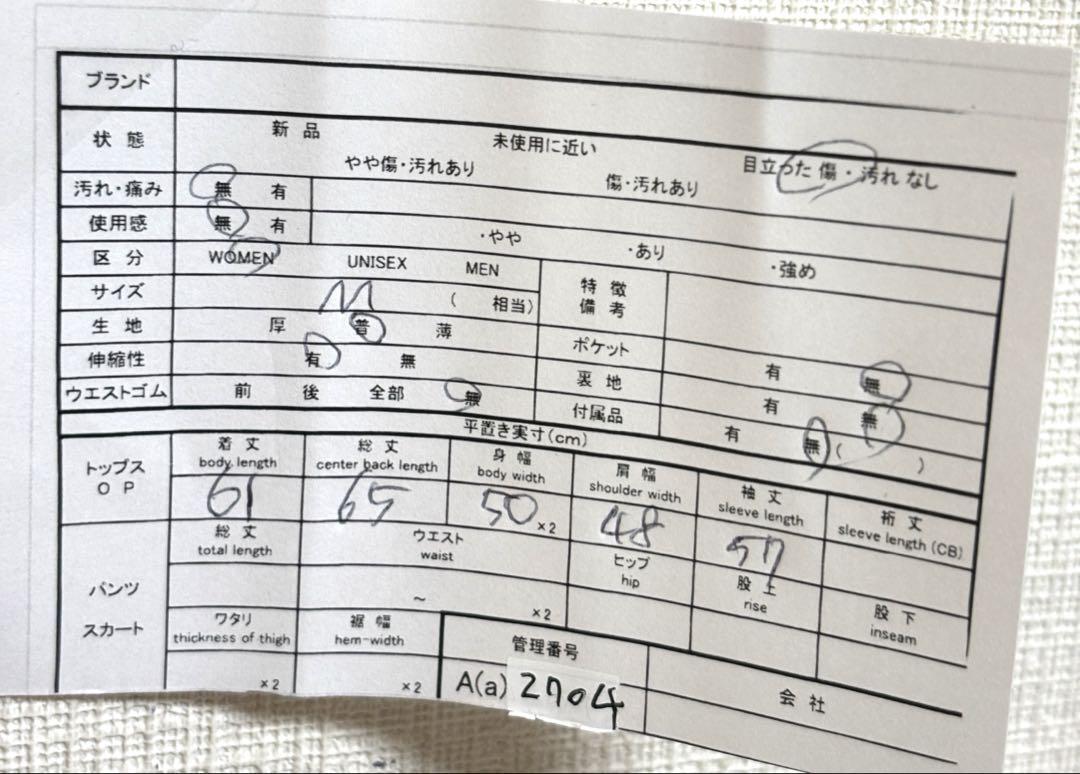 ブランド
状態 新品 未使用に近い 目立った傷・汚れなし
やや傷・汚れあり 傷・汚れあり
汚れ・痛み 無 有
使用感 無 有 ・やや ・あり ・強め
区分 WOMEN UNISEX MEN 特徴備考
サイズ M ( 相当)
生地 厚 普 薄 ポケット 有 無
伸縮性 有 無 裏地 有 無
ウエストゴム 前 後 全部 無 付属品 有 無 ( )
平置き実寸(cm)
トップス OP
着丈 総丈 身幅 肩幅 袖丈 裄丈
body length center back length body width shoulder width sleeve length sleeve length (CB)
61 65 50 ×2 48 57
パンツ スカート
総丈 ウエスト ヒップ 股上 股下
total length waist hip rise inseam
~ ×2
ワタリ 裾幅 管理番号 会社
thickness of thigh hem-width
×2 ×2 A(a) 2704